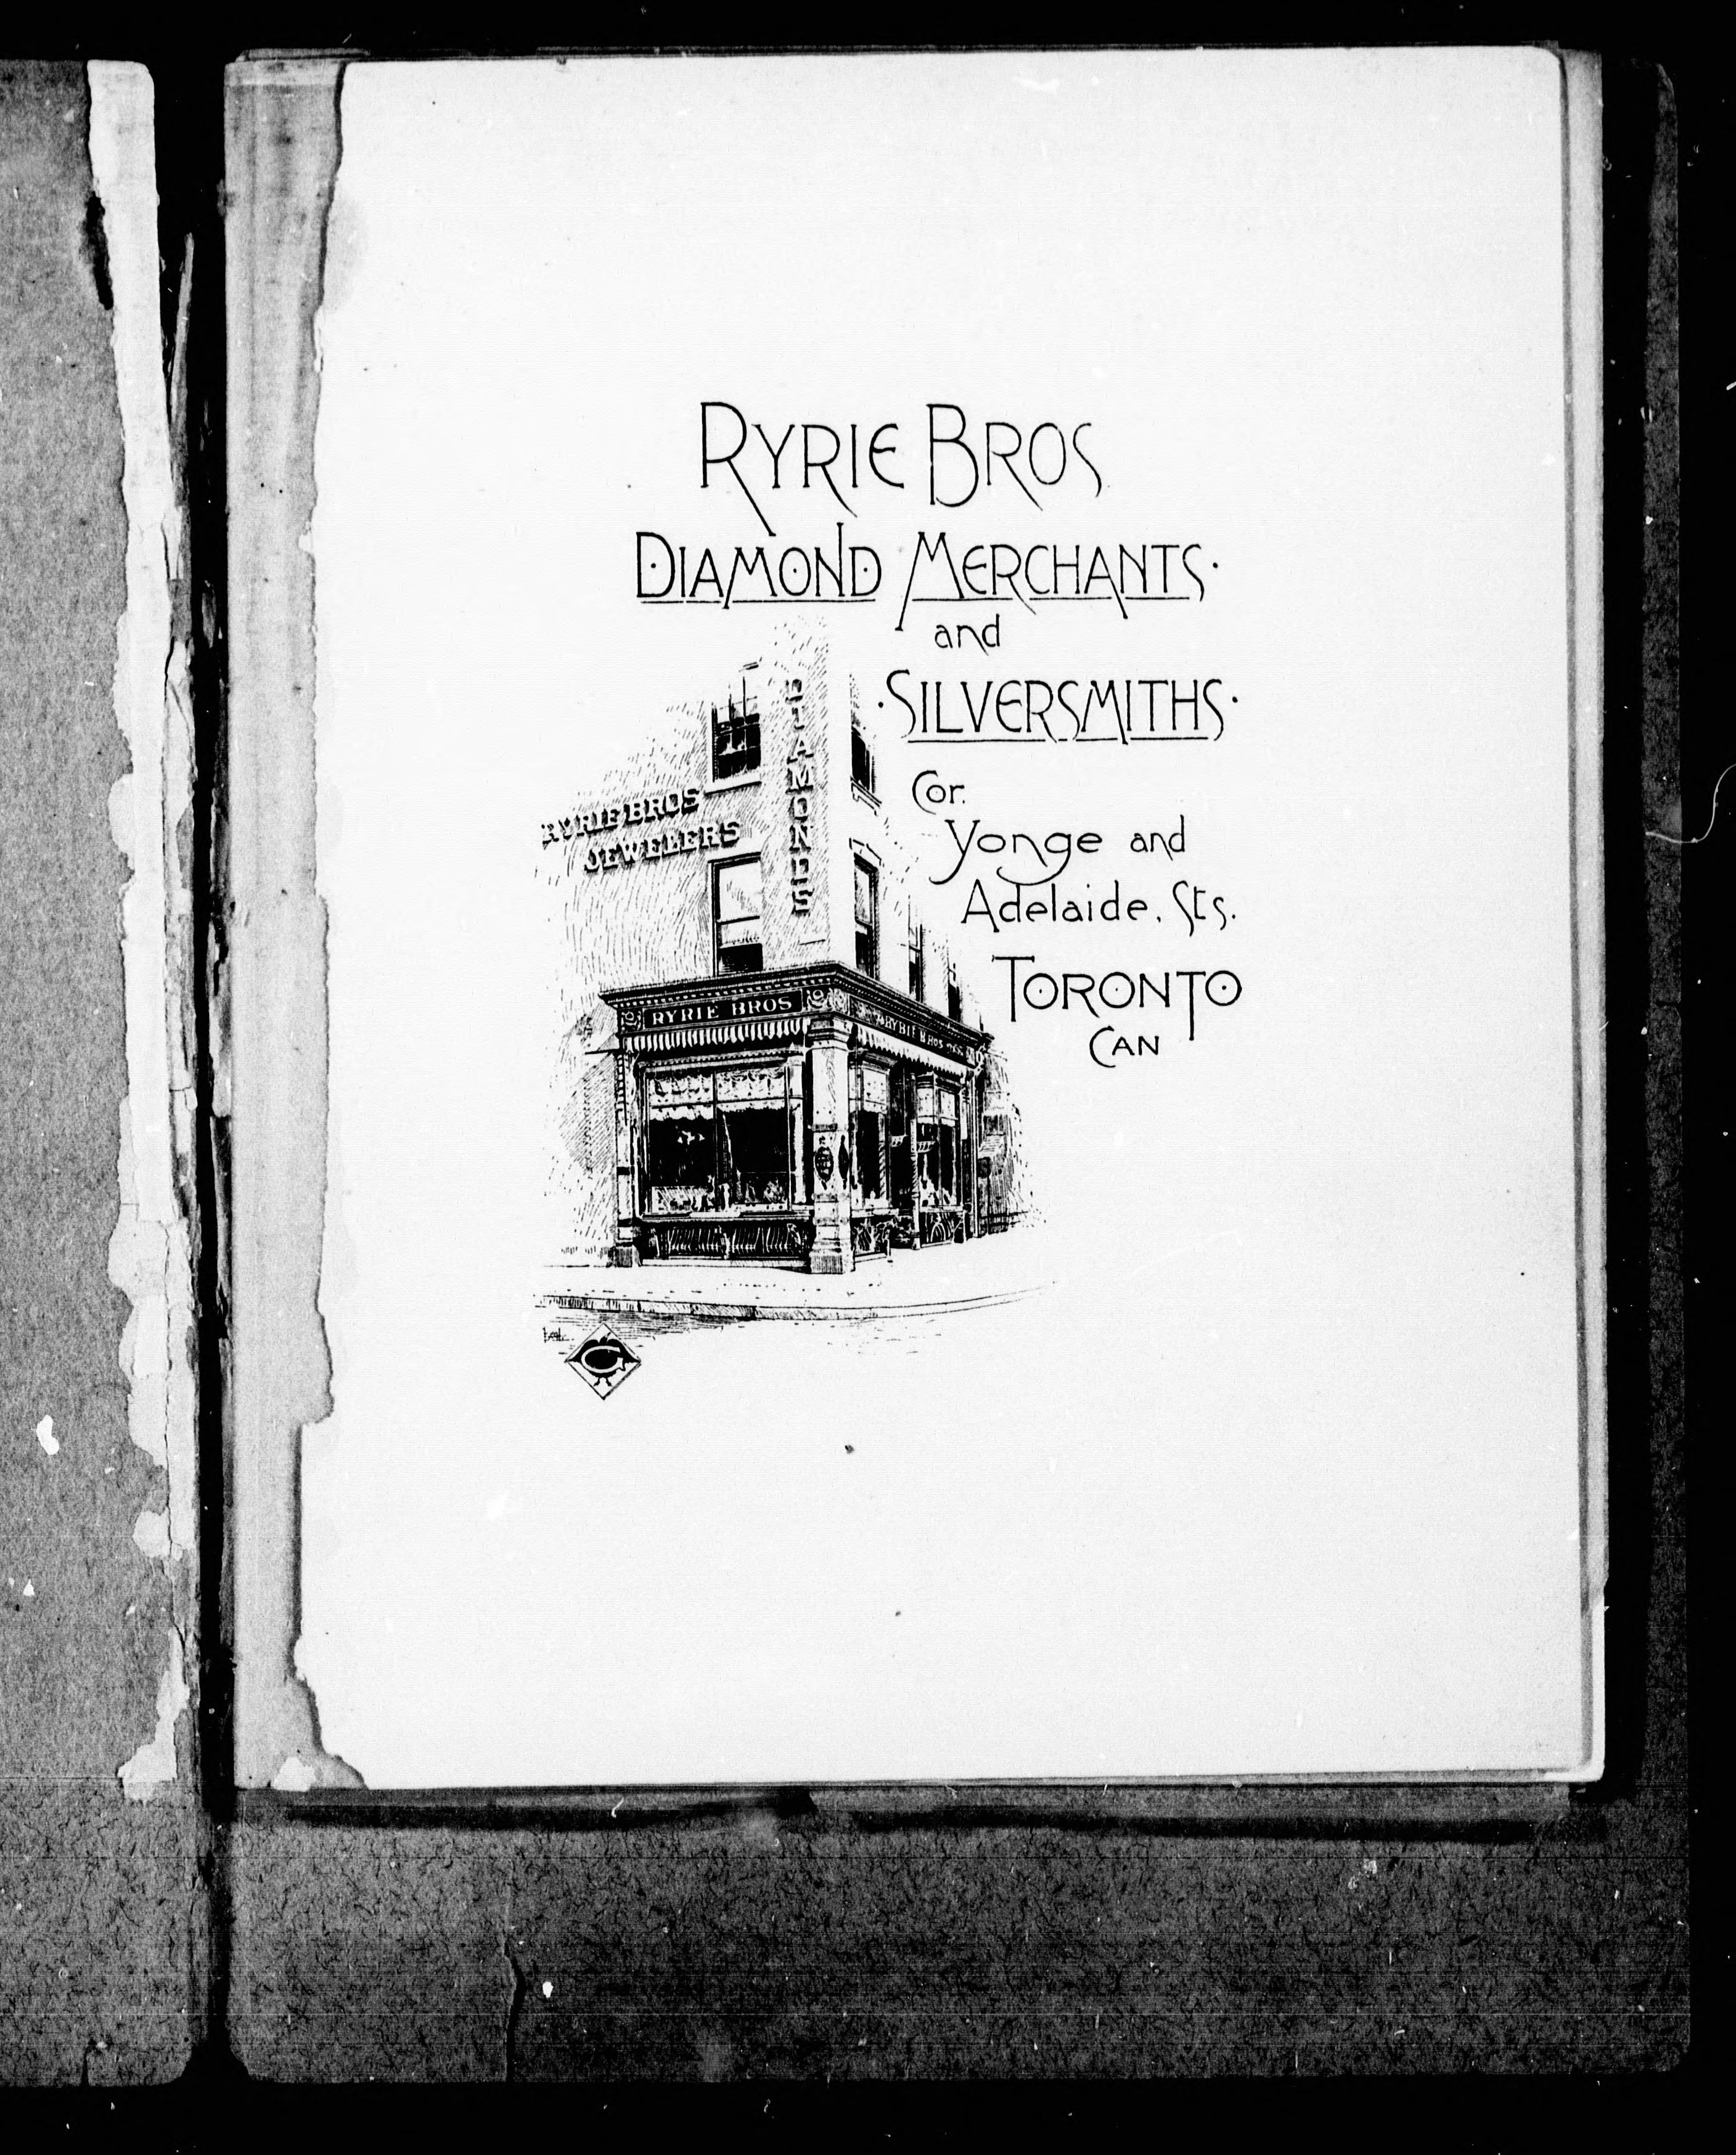 RYRIE BROS
DIAMOND MERCHANTS
and
SILVERSMITHS
Cor.
Yonge and
Adelaide. Sts.
TORONTO
CAN
DIAMONDS
RYRIE BROS
JEWELERS
RYRIE BROS
RYRIE BROS